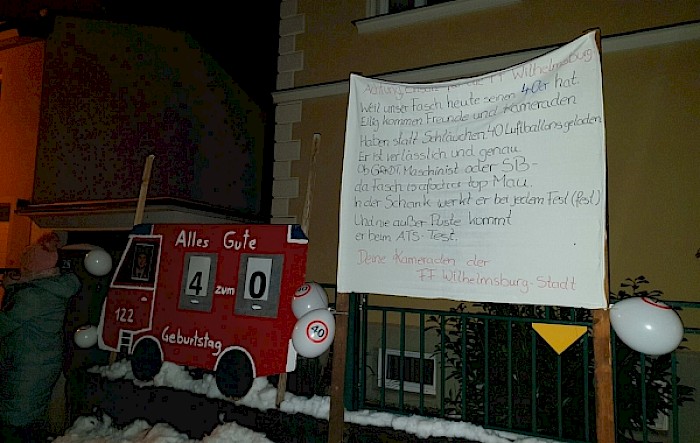 Alles Gute
40 zum
Geburtstag
122
40
Wilhelmsburg
Weil unser Fasch heute seinen 40er hat.
Eilig kommen Freunde und Kameraden
Haben statt Schläuchen 40 Luftballons geladen
Er ist verlässlich und genau
Ob Maschinist oder SB-
da Fasch is afocher a top Mau.
In der Schank werkt er bei jedem Fest (fest)
Und nie außer Puste kommt
er beim ATS-Test.
Deine Kameraden der
FF Wilhelmsburg-Stadt